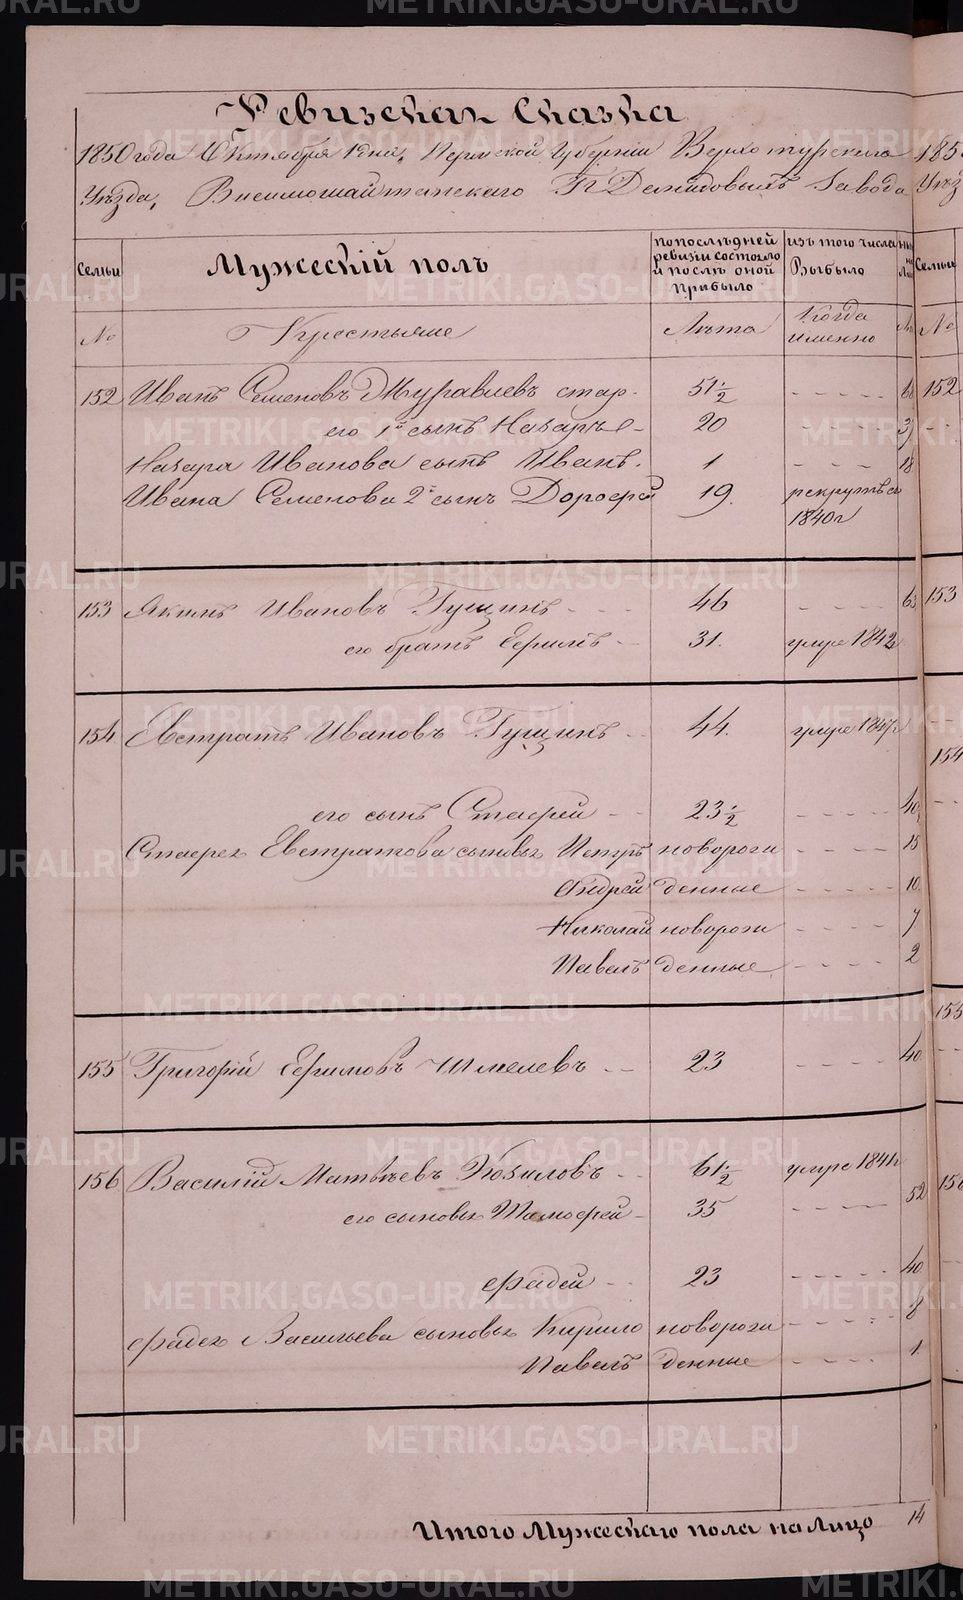 Ревизская Сказка
1850 года Октября 1 дня, Пермской Губернии Верхотурскаго
Уѣзда, Висимошайтанскаго П. Демидовыхъ Завода
Семьи
Мужескій полъ
по послѣдней ревизіи состояло и послѣ оной прибыло
изъ того числа Выбыло
№ Крестьяне Лѣта Когда именно
152 Иванъ Семеновъ Муравиевъ стар. 51½ - - - - -
его 1й сынъ Назаръ 20 - - - -
Назара Иванова сынъ Иванъ. 1 - - - 18
Ивана Семенова 2й сынъ Дорофей 19. рекрутъ съ
1840 г
153 Якимъ Ивановъ Гущинъ - - - 46 - - - -
его братъ Ефимъ - 31. умре 1842
154 Евстратъ Ивановъ Гущинъ - - 44. умре 1847г
его сынъ Стафей - - 23½ - - - - 40
Стафея Евстратова сыновья Петръ новорож - - - - 15
Андрей денные - - - - - 10
Николай новорож - - - - 7
Павелъ денные - - - - 2
155 Григорій Ефимовъ Шмелевъ - - 23 - - - - 40
156 Василій Матвѣевъ Козиловъ - - 61½ умре 1841г
его сыновья Тимофей - 35 - - - - - 52
Фадей - - 23 - - - - - 40
Фадея Васильева сыновья Кирило новорож - - - - - 8
Павелъ денные - - - - 1
Итого Мужескаго пола на Лицо 14
185
Уѣз
Семьи
№
152
153
154
155
METRIKI.GASO-URAL.RU